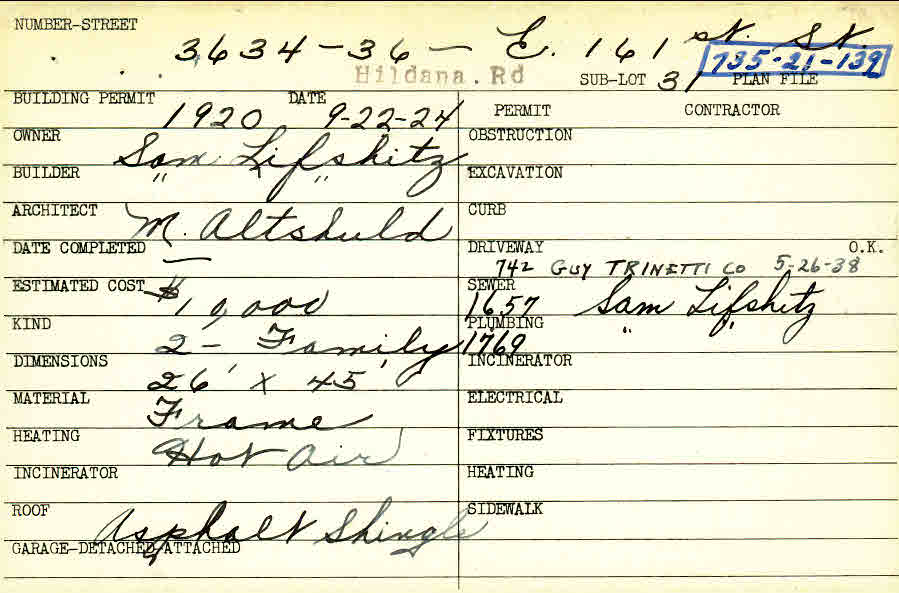 NUMBER-STREET
3634-36 - E. 161 st. St.
735-21-139
Hildana. Rd
SUB-LOT 31 PLAN FILE
BUILDING PERMIT 1920 DATE 9-22-24
PERMIT CONTRACTOR
OWNER Sam Lifshitz
OBSTRUCTION
BUILDER " "
EXCAVATION
ARCHITECT M. Altshuld
CURB
DATE COMPLETED —
DRIVEWAY O.K.
742 GUY TRINETTI CO 5-26-38
ESTIMATED COST $10,000
SEWER 1657 Sam Lifshitz
KIND 2 - Family
PLUMBING 1769 " "
DIMENSIONS 26' x 45'
INCINERATOR
MATERIAL Frame
ELECTRICAL
HEATING Hot Air
FIXTURES
INCINERATOR
HEATING
ROOF Asphalt Shingle
SIDEWALK
GARAGE-DETACHED-ATTACHED